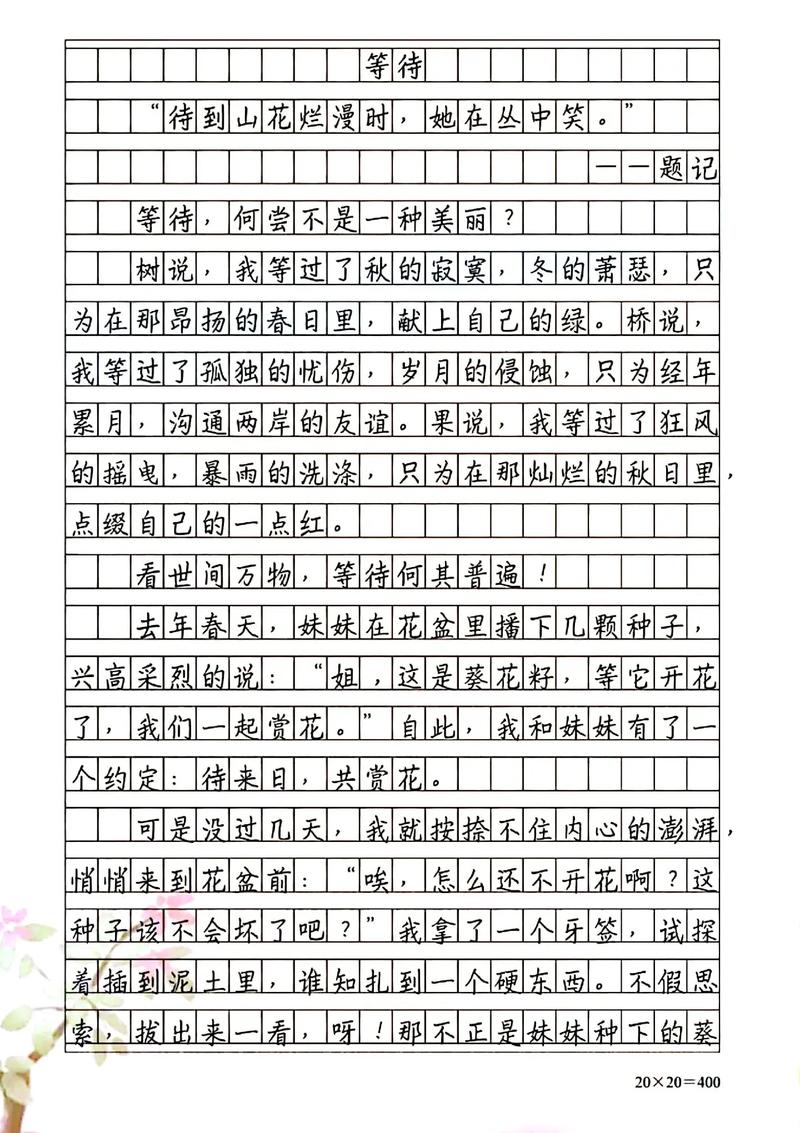 等待
“待到山花烂漫时，她在丛中笑。”
——题记
等待，何尝不是一种美丽？
树说，我等过了秋的寂寞，冬的萧瑟，只
为在那昂扬的春日里，献上自己的绿。桥说，
我等过了孤独的忧伤，岁月的侵蚀，只为经年
累月，沟通两岸的友谊。果说，我等过了狂风
的摇曳，暴雨的洗涤，只为在那灿烂的秋日里，
点缀自己的一点红。
看世间万物，等待何其普遍！
去年春天，妹妹在花盆里播下几颗种子，
兴高采烈的说：“姐，这是葵花籽，等它开花
了，我们一起赏花。”自此，我和妹妹有了一
个约定：待来日，共赏花。
可是没过几天，我就按捺不住内心的澎湃，
悄悄来到花盆前：“唉，怎么还不开花啊？这
种子该不会坏了吧？”我拿了一个牙签，试探
着插到泥土里，谁知扎到一个硬东西。不假思
索，拔出来一看，呀！那不正是妹妹种下的葵
20×20=400